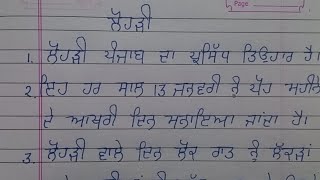 ਲੋਹੜੀ
1. ਲੋਹੜੀ ਪੰਜਾਬ ਦਾ ਪ੍ਰਸਿੱਧ ਤਿਉਹਾਰ ਹੈ।
2. ਇਹ ਹਰ ਸਾਲ 13 ਜਨਵਰੀ ਨੂੰ ਪੋਹ ਮਹੀਨੇ
ਦੇ ਆਖਰੀ ਦਿਨ ਮਨਾਇਆ ਜਾਂਦਾ ਹੈ।
3. ਲੋਹੜੀ ਵਾਲੇ ਦਿਨ ਲੋਕ ਰਾਤ ਨੂੰ ਲੱਕੜਾਂ